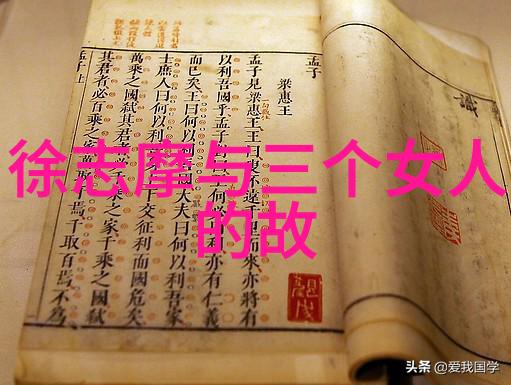 徐志摩与三个女人
的故
識
孟子
梁惠王
孟子見梁惠王王曰叟不遠千里而來亦將有
以利吾國乎孟子曰王何必曰利亦有仁義
而已矣王曰何以利吾國大夫曰何以利吾家
士庶人曰何以利交征利而國危矣
萬乘之國弒其君者千乘之家千乘之國弒
其君者必百乘之家萬取焉千取百焉不為
孟子上
头条 @爱我国学